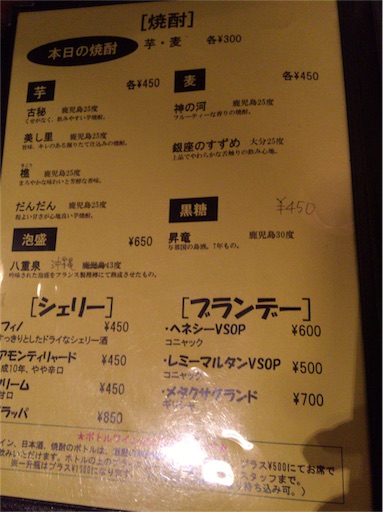 [焼酎]
本日の焼酎 芋・麦 各¥300
芋 各¥450
古秘 鹿児島25度
くせがなく、飲みやすい芋焼酎。
美し里 鹿児島25度
旨味、キレのある掘りたて仕込みの焼酎。
樵 鹿児島25度
まろやかな味わいと芳醇な香味。
だんだん 鹿児島25度
程よい甘さが心地良い芋焼酎。
麦 各¥450
神の河 鹿児島25度
フルーティーな香りの焼酎。
銀座のすずめ 大分25度
上品でやわらかな舌触りの飲み心地。
黒糖 ¥450
昇竜 鹿児島30度
与論国の島酒。7年もの。
泡盛 ¥650
八重泉 沖縄 鹿児島43度
吟味された泡盛をフランス製樫樽にて熟成させたもの。
[シェリー]
フィノ ¥450
すっきりとしたドライなシェリー酒
アモンティリャード ¥450
成10年、やや辛口
クリーム ¥450
甘口
グラッパ ¥850
[ブランデー]
・ヘネシーVSOP ¥600
コニャック
・レミーマルタンVSOP ¥500
コニャック
・メタクサグランド ¥700
ギリシャ
★ボトルワイン
イン、日本酒、焼酎のボトルは、
プラス¥500にてお席で
飲みいただけます。ボトルの上の
スタッフまで。
※一升瓶はプラス¥1500になります。
持ち込み可。)